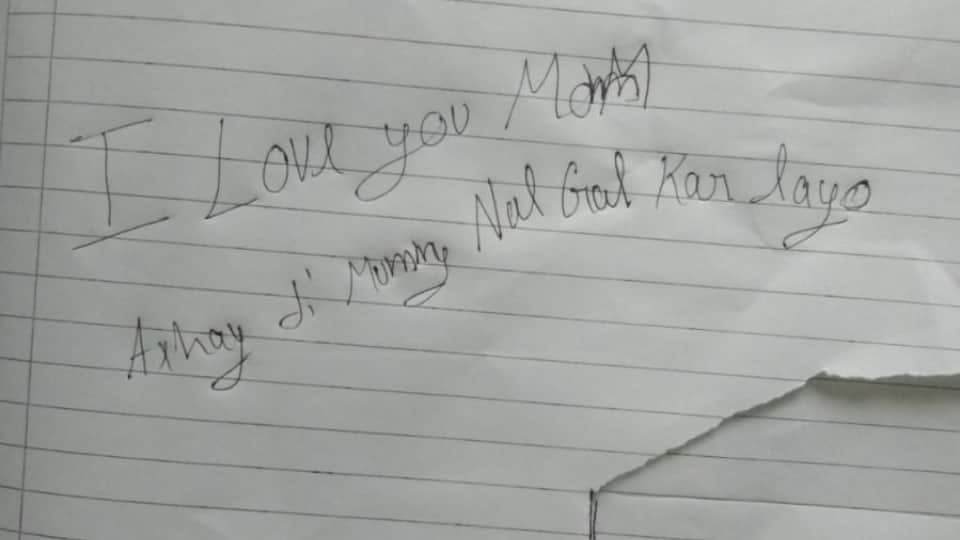 I Love you Mom
Axhay di Mommy Nal Gal Kar layo